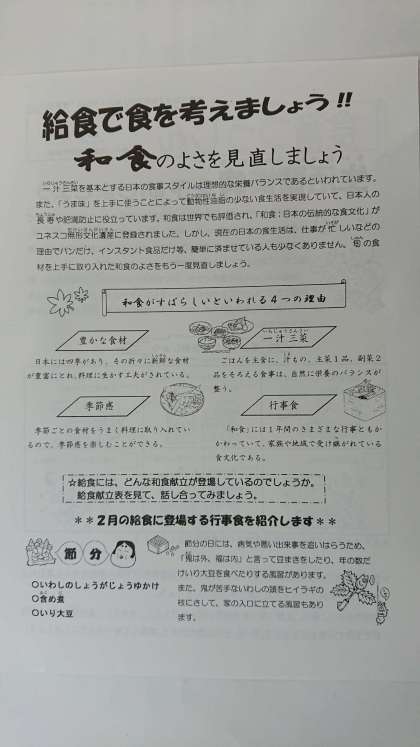 給食で食を考えましょう!!
和食のよさを見直しましょう
一汁三菜を基本とする日本の食事スタイルは理想的な栄養バランスであるといわれています。
また、「うま味」を上手に使うことによって動物性油脂の少ない食生活を実現していて、日本人の
長寿や肥満防止に役立っています。和食は世界でも評価され、「和食：日本の伝統的な食文化」が
ユネスコ無形文化遺産に登録されました。しかし、現在の日本の食生活は、仕事が忙しいなどの
理由でパンだけ、インスタント食品だけ等、簡単に済ませている人も少なくありません。旬の食
材を上手に取り入れた和食のよさをもう一度見直しましょう。
和食がすばらしいといわれる4つの理由
豊かな食材
日本には四季があり、その折々に新鮮な食材
が豊富にとれ、料理に生かす工夫がされている。
一汁三菜
ごはんを主食に、汁もの、主菜1品、副菜2
品をそろえる食事は、自然に栄養のバランスが
整う。
季節感
季節ごとの食材をうまく料理に取り入れてい
るので、季節感を楽しむことができる。
行事食
「和食」には1年間のさまざまな行事ともか
かわっていて、家族や地域で受け継がれている
食文化である。
☆給食には、どんな和食献立が登場しているのでしょうか。
給食献立表を見て、話し合ってみましょう。
＊＊2月の給食に登場する行事食を紹介します＊＊
節分
○いわしのしょうがじょうゆかけ
○含め煮
○いり大豆
節分の日には、病気や悪い出来事を追いはらうため、
「鬼は外、福は内」と言って豆まきをしたり、年の数だ
けいり大豆を食べたりする風習があります。
また、鬼が苦手ないわしの頭をヒイラギの
枝にさして、家の入口に立てる風習もあり
ます。